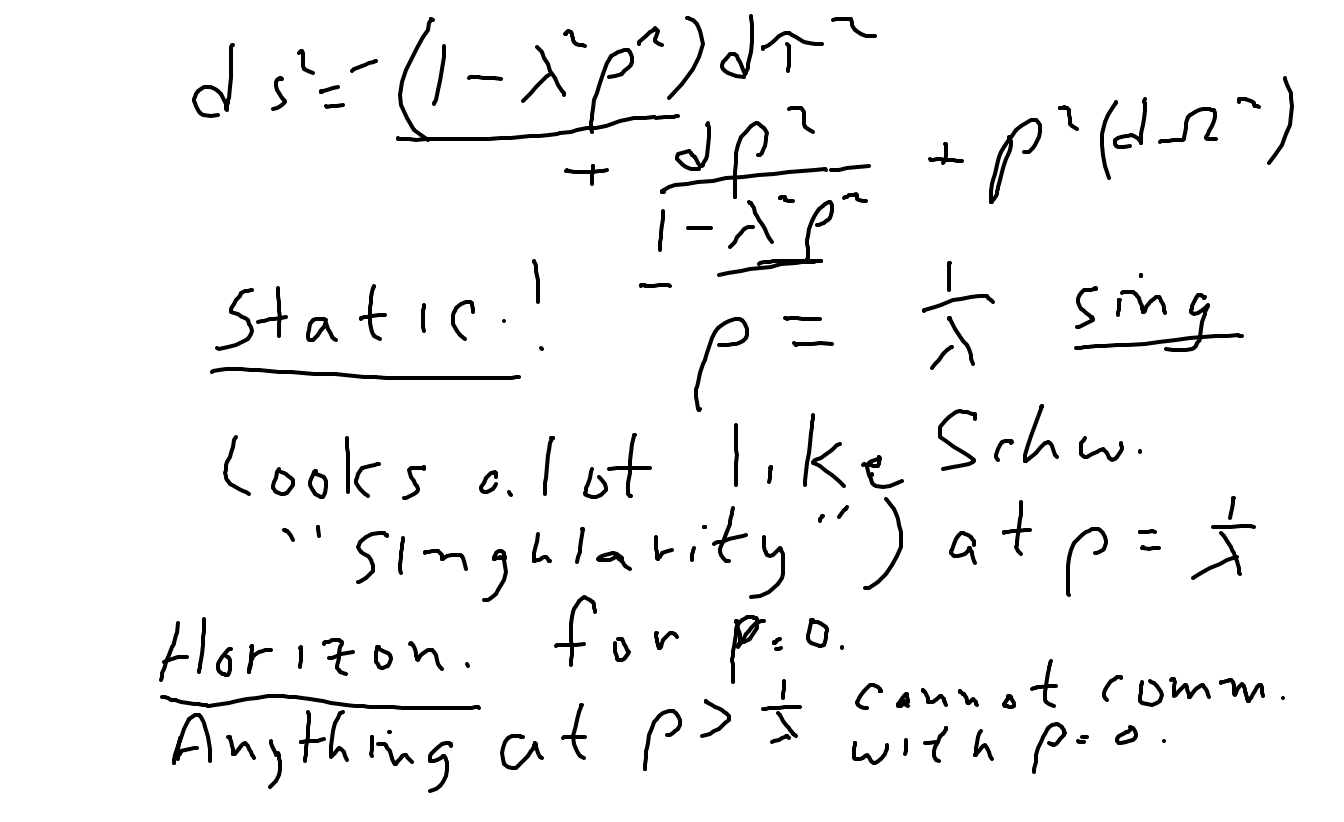 ds² = -(1-λ²ρ²)dπ²
+ dρ²/(1-λ²ρ²) + ρ²(dΩ²)
Static! - ρ = 1/λ sing
Looks a lot like Schw.
"Singhlarity") at ρ = 1/λ
Horizon. for ρ=0.
Anything at ρ > 1/λ cannot comm.
with ρ=0.